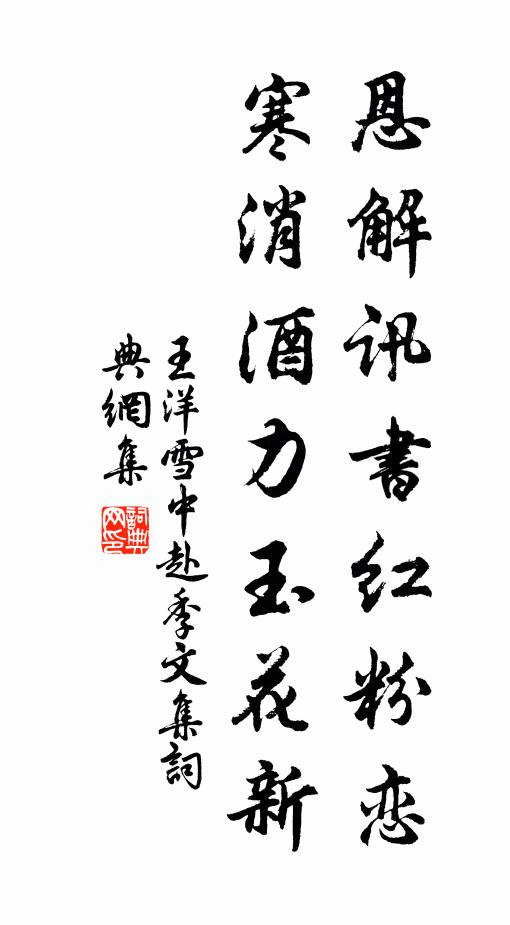 恩解讯書红粉恋
寒消酒力玉花新
王洋雪中赴季文集詞
典網集
詞典
网印